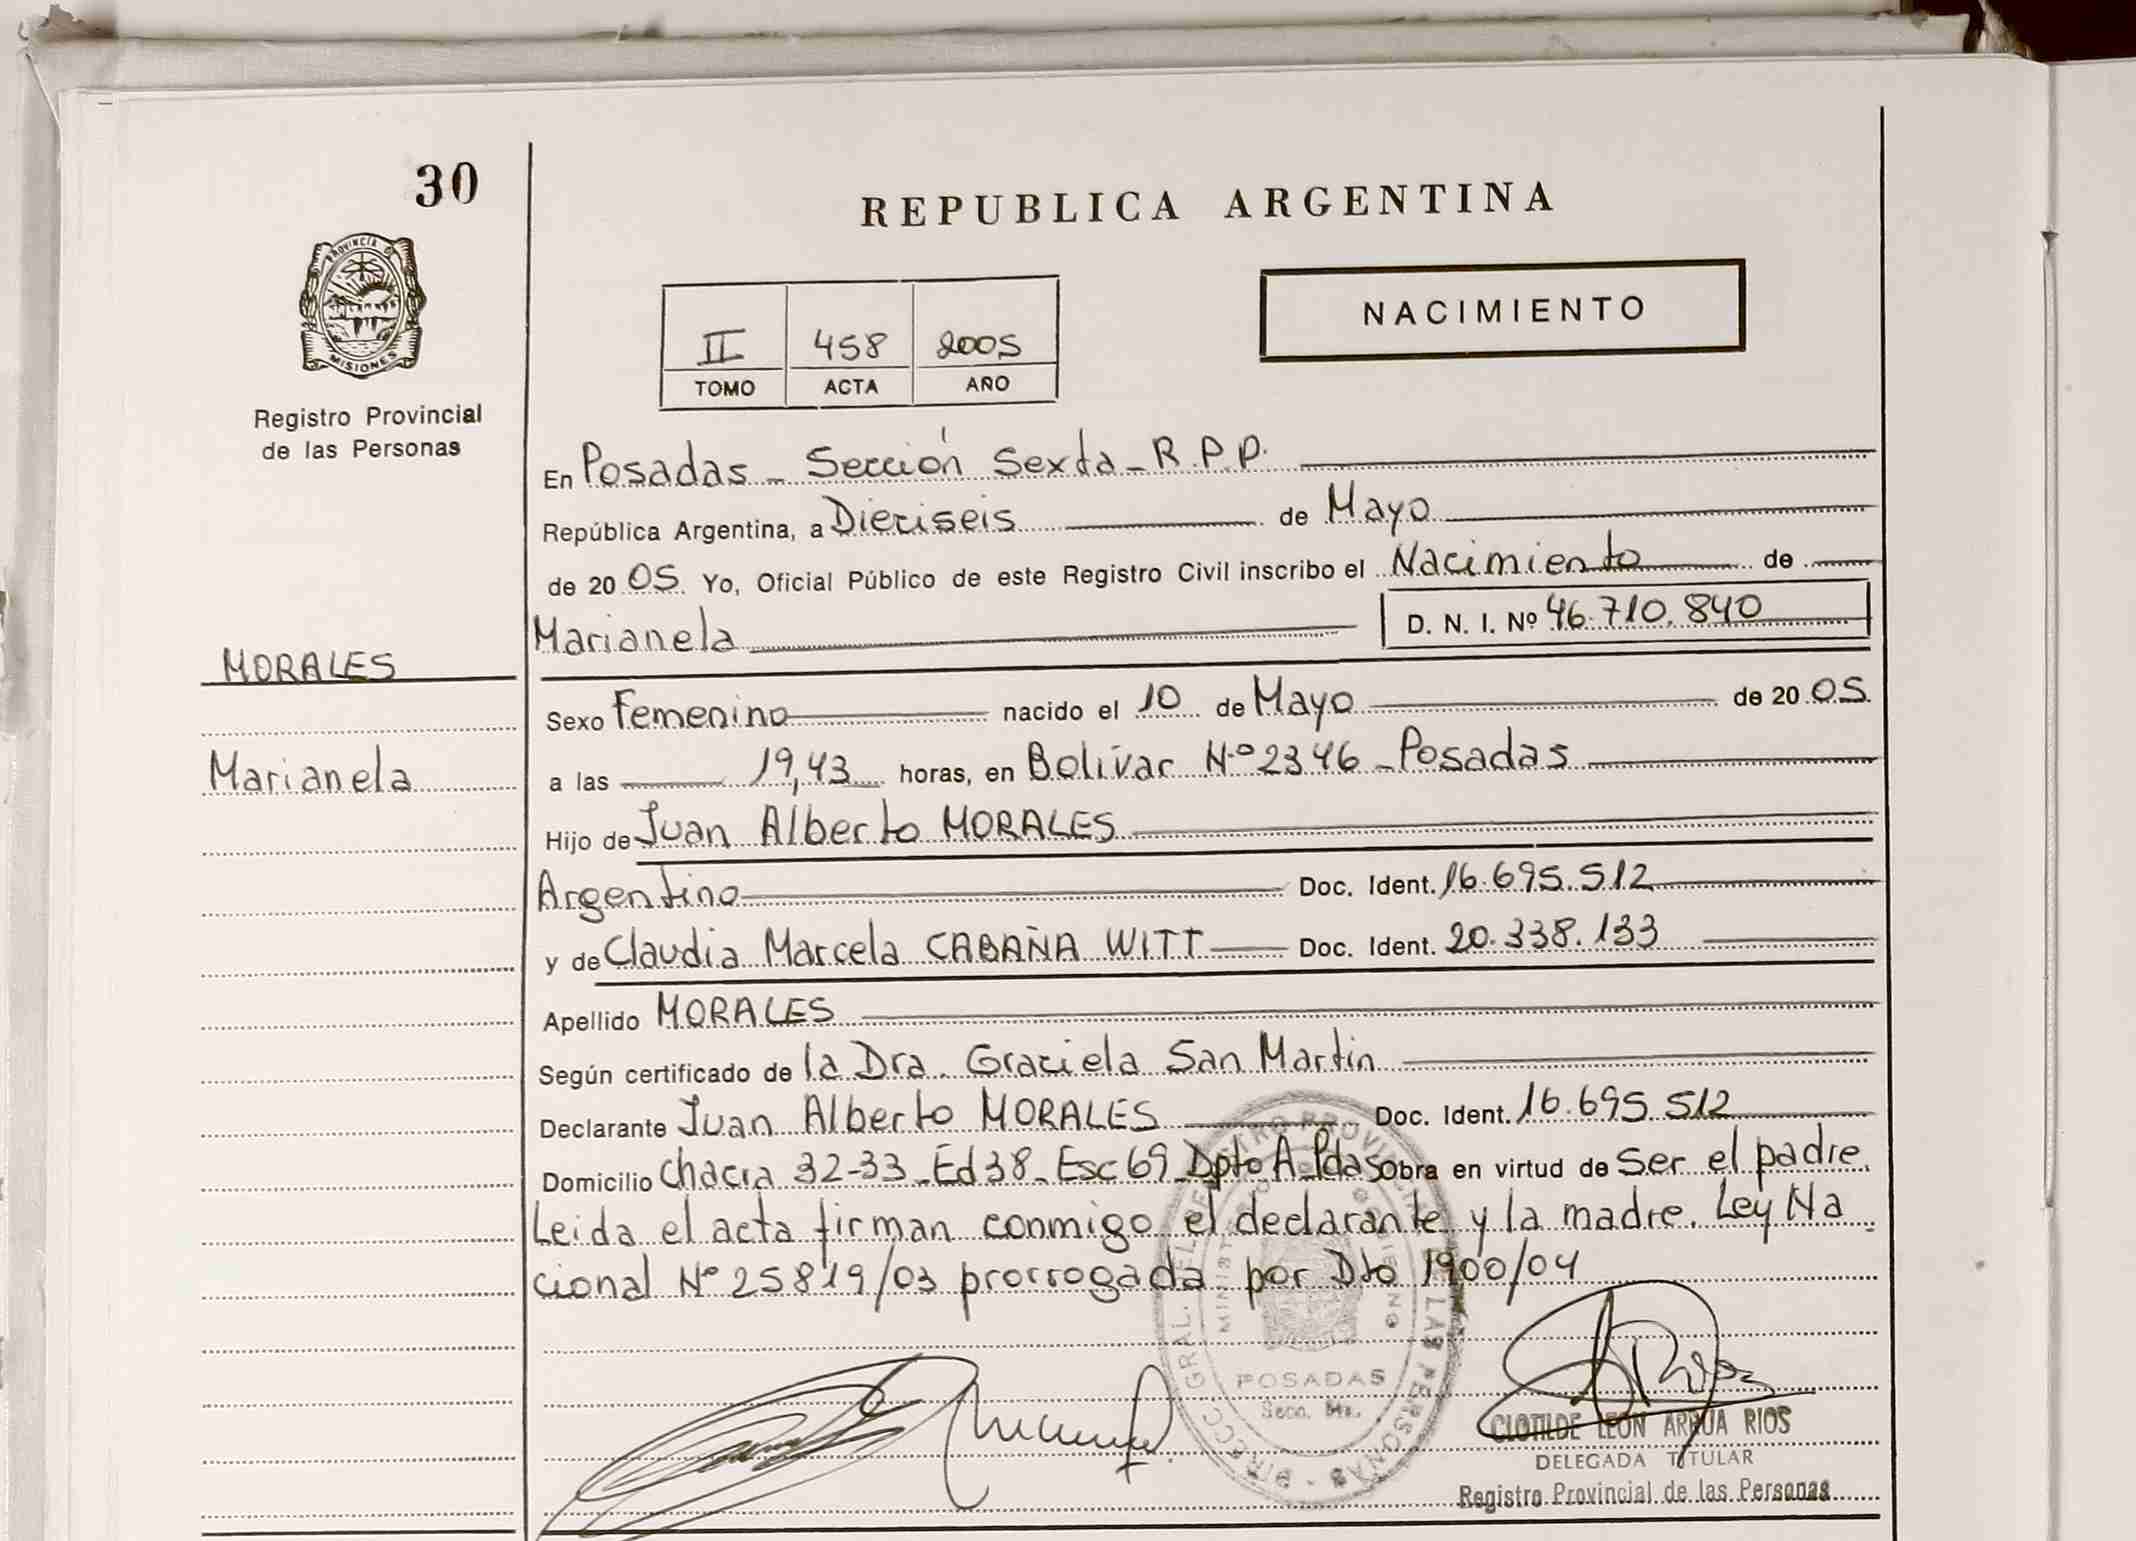 30
REPUBLICA ARGENTINA
PROVINCIA D
MISIONES
NACIMIENTO
II 458 2005
TOMO ACTA AÑO
Registro Provincial
de las Personas
En Posadas - Sección Sexta - R.P.P.
República Argentina, a Dieciseis de Mayo
de 20 05. Yo, Oficial Público de este Registro Civil inscribo el Nacimiento de
Marianela D. N. I. Nº 46.710.840
MORALES
Sexo Femenino nacido el 10 de Mayo de 20 05.
Marianela
a las 19,43 horas, en Bolívar Nº 2346 - Posadas
Hijo de Juan Alberto MORALES
Argentino Doc. Ident. 16.695.512
y de Claudia Marcela CABAÑA WITT Doc. Ident. 20.338.133
Apellido MORALES
Según certificado de la Dra. Graciela San Martín
Declarante Juan Alberto MORALES Doc. Ident. 16.695.512
Domicilio Chacra 32-33 - Ed 38 - Esc 69 Dpto A - Pdas Obra en virtud de Ser el padre.
Leida el acta firman conmigo el declarante y la madre. Ley Na
cional Nº 25819/03 prorrogada por Dto 1900/04
POSADAS
CLOTILDE LEON ARRUA RIOS
DELEGADA TITULAR
Registro Provincial de las Personas